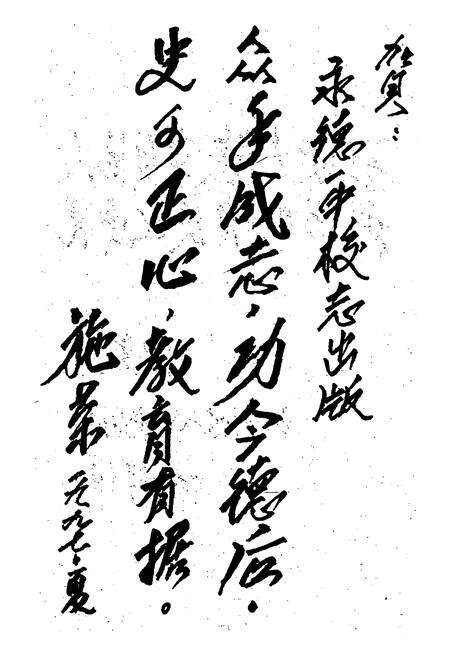 贺：
永德一中校志出版
众手成志，功今德后。
史可正心，教育有据。
施荣
一九九七·夏